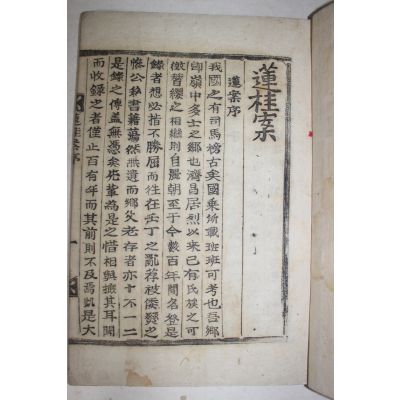 蓮桂案
蓮案序
我國之有司馬榜古矣國乘所載班班可考也吾鄉
卽嶺中多士之鄉也濟昌居烈以來已有氏族之可
徵簪纓之相繼則自麗朝至于今數百年間名登是
錄者想必指不勝屈而往在壬丁之亂荐被倭燹之
慘公私書籍蕩然無遺而鄉父老存者亦十不一二
是錄之傳盖無憑矣先輩爲是之惜相與摭其耳聞
而收錄之者僅止百有年而其前則不及焉凱是大
蓮桂案序 一